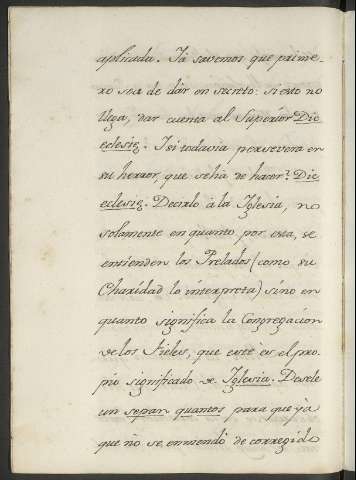 aplicada. Ià savemos que prime-
ro sea de dàr en secreto: si esto no
llega, dar cuenta al Superior Dic
eclesię. I si todavia persevera en
su herror, que se hà de hacer? Dic
eclesię. Decirlo à la Iglesia, no
solamente en quanto por esta, se
entienden los Prelados (como su
Charidad lo interpreta) sino en
quanto significa la Congregacion
de los Fieles, que estè es el pro
pio significado de Iglesia. Desele
un sepan quantos para que yà
que no se enmendò de corregido